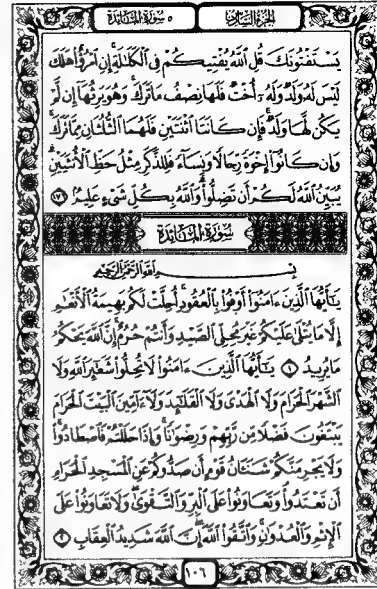 الجزء السادس ٥ سورة المائدة
يَسْتَفْتُونَكَ قُلِ ٱللَّهُ يُفْتِيكُمْ فِى ٱلْكَلَٰلَةِ إِنِ ٱمْرُؤٌا۟ هَلَكَ
لَيْسَ لَهُۥ وَلَدٌ وَلَهُۥٓ أُخْتٌ فَلَهَا نِصْفُ مَا تَرَكَ وَهُوَ يَرِثُهَآ إِن لَّمْ
يَكُن لَّهَا وَلَدٌ فَإِن كَانَتَا ٱثْنَتَيْنِ فَلَهُمَا ٱلثُّلُثَانِ مِمَّا تَرَكَ
وَإِن كَانُوٓا۟ إِخْوَةً رِّجَالًا وَنِسَآءً فَلِلذَّكَرِ مِثْلُ حَظِّ ٱلْأُنثَيَيْنِ
يُبَيِّنُ ٱللَّهُ لَكُمْ أَن تَضِلُّوا۟ وَٱللَّهُ بِكُلِّ شَىْءٍ عَلِيمٌۢ ١٧٦
سورة المائدة
بِسْمِ ٱللَّهِ ٱلرَّحْمَٰنِ ٱلرَّحِيمِ
يَٰٓأَيُّهَا ٱلَّذِينَ ءَامَنُوٓا۟ أَوْفُوا۟ بِٱلْعُقُودِ أُحِلَّتْ لَكُم بَهِيمَةُ ٱلْأَنْعَٰمِ
إِلَّا مَا يُتْلَىٰ عَلَيْكُمْ غَيْرَ مُحِلِّى ٱلصَّيْدِ وَأَنتُمْ حُرُمٌ إِنَّ ٱللَّهَ يَحْكُمُ
مَا يُرِيدُ ١ يَٰٓأَيُّهَا ٱلَّذِينَ ءَامَنُوا۟ لَا تُحِلُّوا۟ شَعَٰٓئِرَ ٱللَّهِ وَلَا
ٱلشَّهْرَ ٱلْحَرَامَ وَلَا ٱلْهَدْىَ وَلَا ٱلْقَلَٰٓئِدَ وَلَآ ءَآمِّينَ ٱلْبَيْتَ ٱلْحَرَامَ
يَبْتَغُونَ فَضْلًا مِّن رَّبِّهِمْ وَرِضْوَٰنًا وَإِذَا حَلَلْتُمْ فَٱصْطَادُوا۟
وَلَا يَجْرِمَنَّكُمْ شَنَـَٔانُ قَوْمٍ أَن صَدُّوكُمْ عَنِ ٱلْمَسْجِدِ ٱلْحَرَامِ
أَن تَعْتَدُوا۟ وَتَعَاوَنُوا۟ عَلَى ٱلْبِرِّ وَٱلتَّقْوَىٰ وَلَا تَعَاوَنُوا۟ عَلَى
ٱلْإِثْمِ وَٱلْعُدْوَٰنِ وَٱتَّقُوا۟ ٱللَّهَ إِنَّ ٱللَّهَ شَدِيدُ ٱلْعِقَابِ ٢
١٠٦